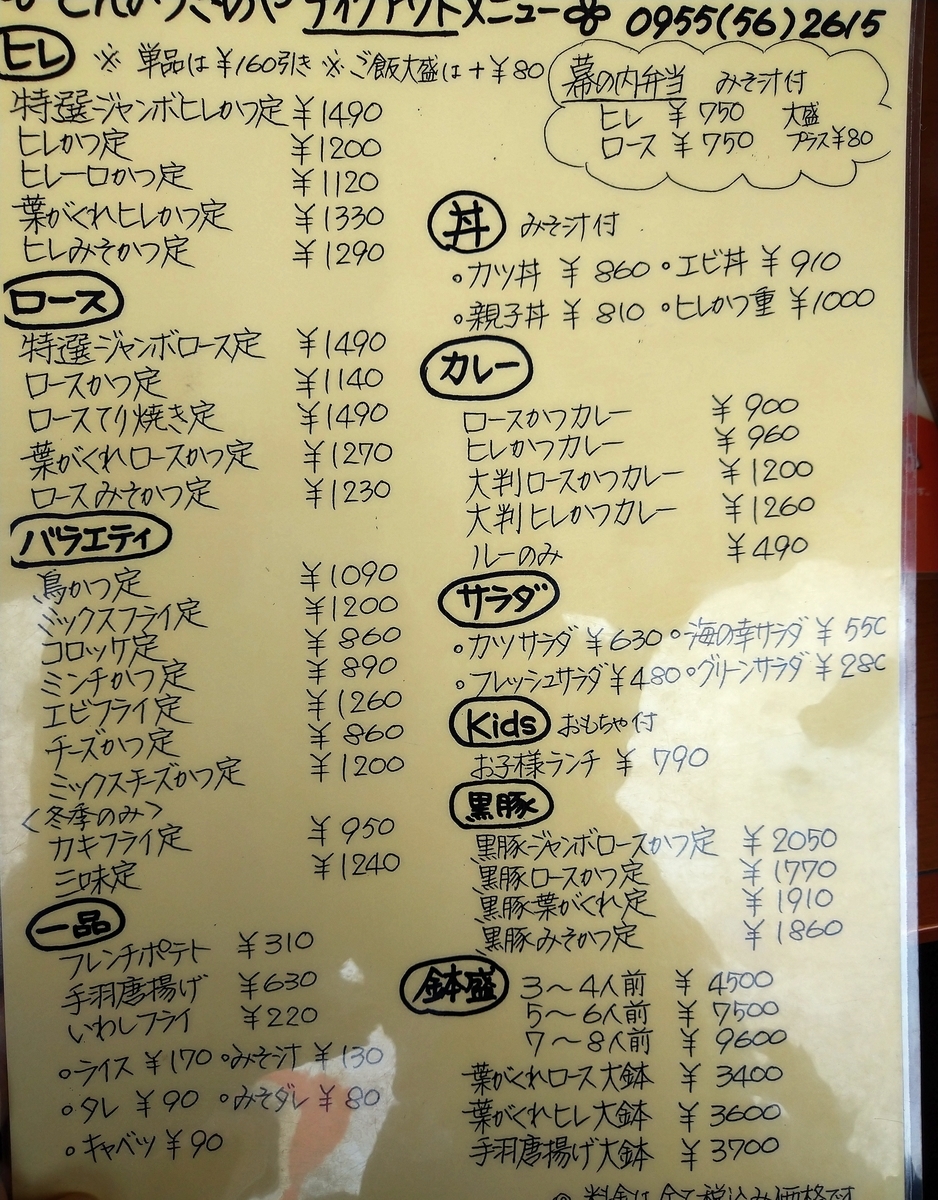 とんかつきのや テイクアウトメニュー 0955(56)2615
ヒレ ※単品は¥160引き ※ご飯大盛は+¥80
特選ジャンボヒレかつ定 ¥1490
ヒレかつ定 ¥1200
ヒレ一口かつ定 ¥1120
葉がくれヒレかつ定 ¥1330
ヒレみそかつ定 ¥1290
ロース
特選ジャンボロース定 ¥1490
ロースかつ定 ¥1140
ロースてり焼き定 ¥1490
葉がくれロースかつ定 ¥1270
ロースみそかつ定 ¥1230
バラエティ
鳥かつ定 ¥1090
ミックスフライ定 ¥1200
コロッケ定 ¥860
ミンチかつ定 ¥890
エビフライ定 ¥1260
チーズかつ定 ¥860
ミックスチーズかつ定 ¥1200
<冬季のみ>
カキフライ定 ¥950
三味定 ¥1240
一品
フレンチポテト ¥310
手羽唐揚げ ¥630
いわしフライ ¥220
。ライス ¥170 。みそ汁 ¥130
。タレ ¥90 。みそダレ ¥80
。キャベツ ¥90
幕の内弁当 みそ汁付
ヒレ ¥750 大盛
ロース ¥750 プラス¥80
丼 みそ汁付
。カツ丼 ¥860 。エビ丼 ¥910
。親子丼 ¥810 。ヒレかつ重 ¥1000
カレー
ロースかつカレー ¥900
ヒレかつカレー ¥960
大判ロースかつカレー ¥1200
大判ヒレかつカレー ¥1260
ルーのみ ¥490
サラダ
。カツサラダ ¥630 。海の幸サラダ ¥550
。フレッシュサラダ ¥480 。グリーンサラダ ¥280
Kids おもちゃ付
お子様ランチ ¥790
黒豚
黒豚ジャンボロースかつ定 ¥2050
黒豚ロースかつ定 ¥1770
黒豚葉がくれ定 ¥1910
黒豚みそかつ定 ¥1860
鉢盛 3〜4人前 ¥4500
5〜6人前 ¥7500
7〜8人前 ¥9600
葉がくれロース大鉢 ¥3400
葉がくれヒレ大鉢 ¥3600
手羽唐揚げ大鉢 ¥3700
◎料金は全て税込み価格です